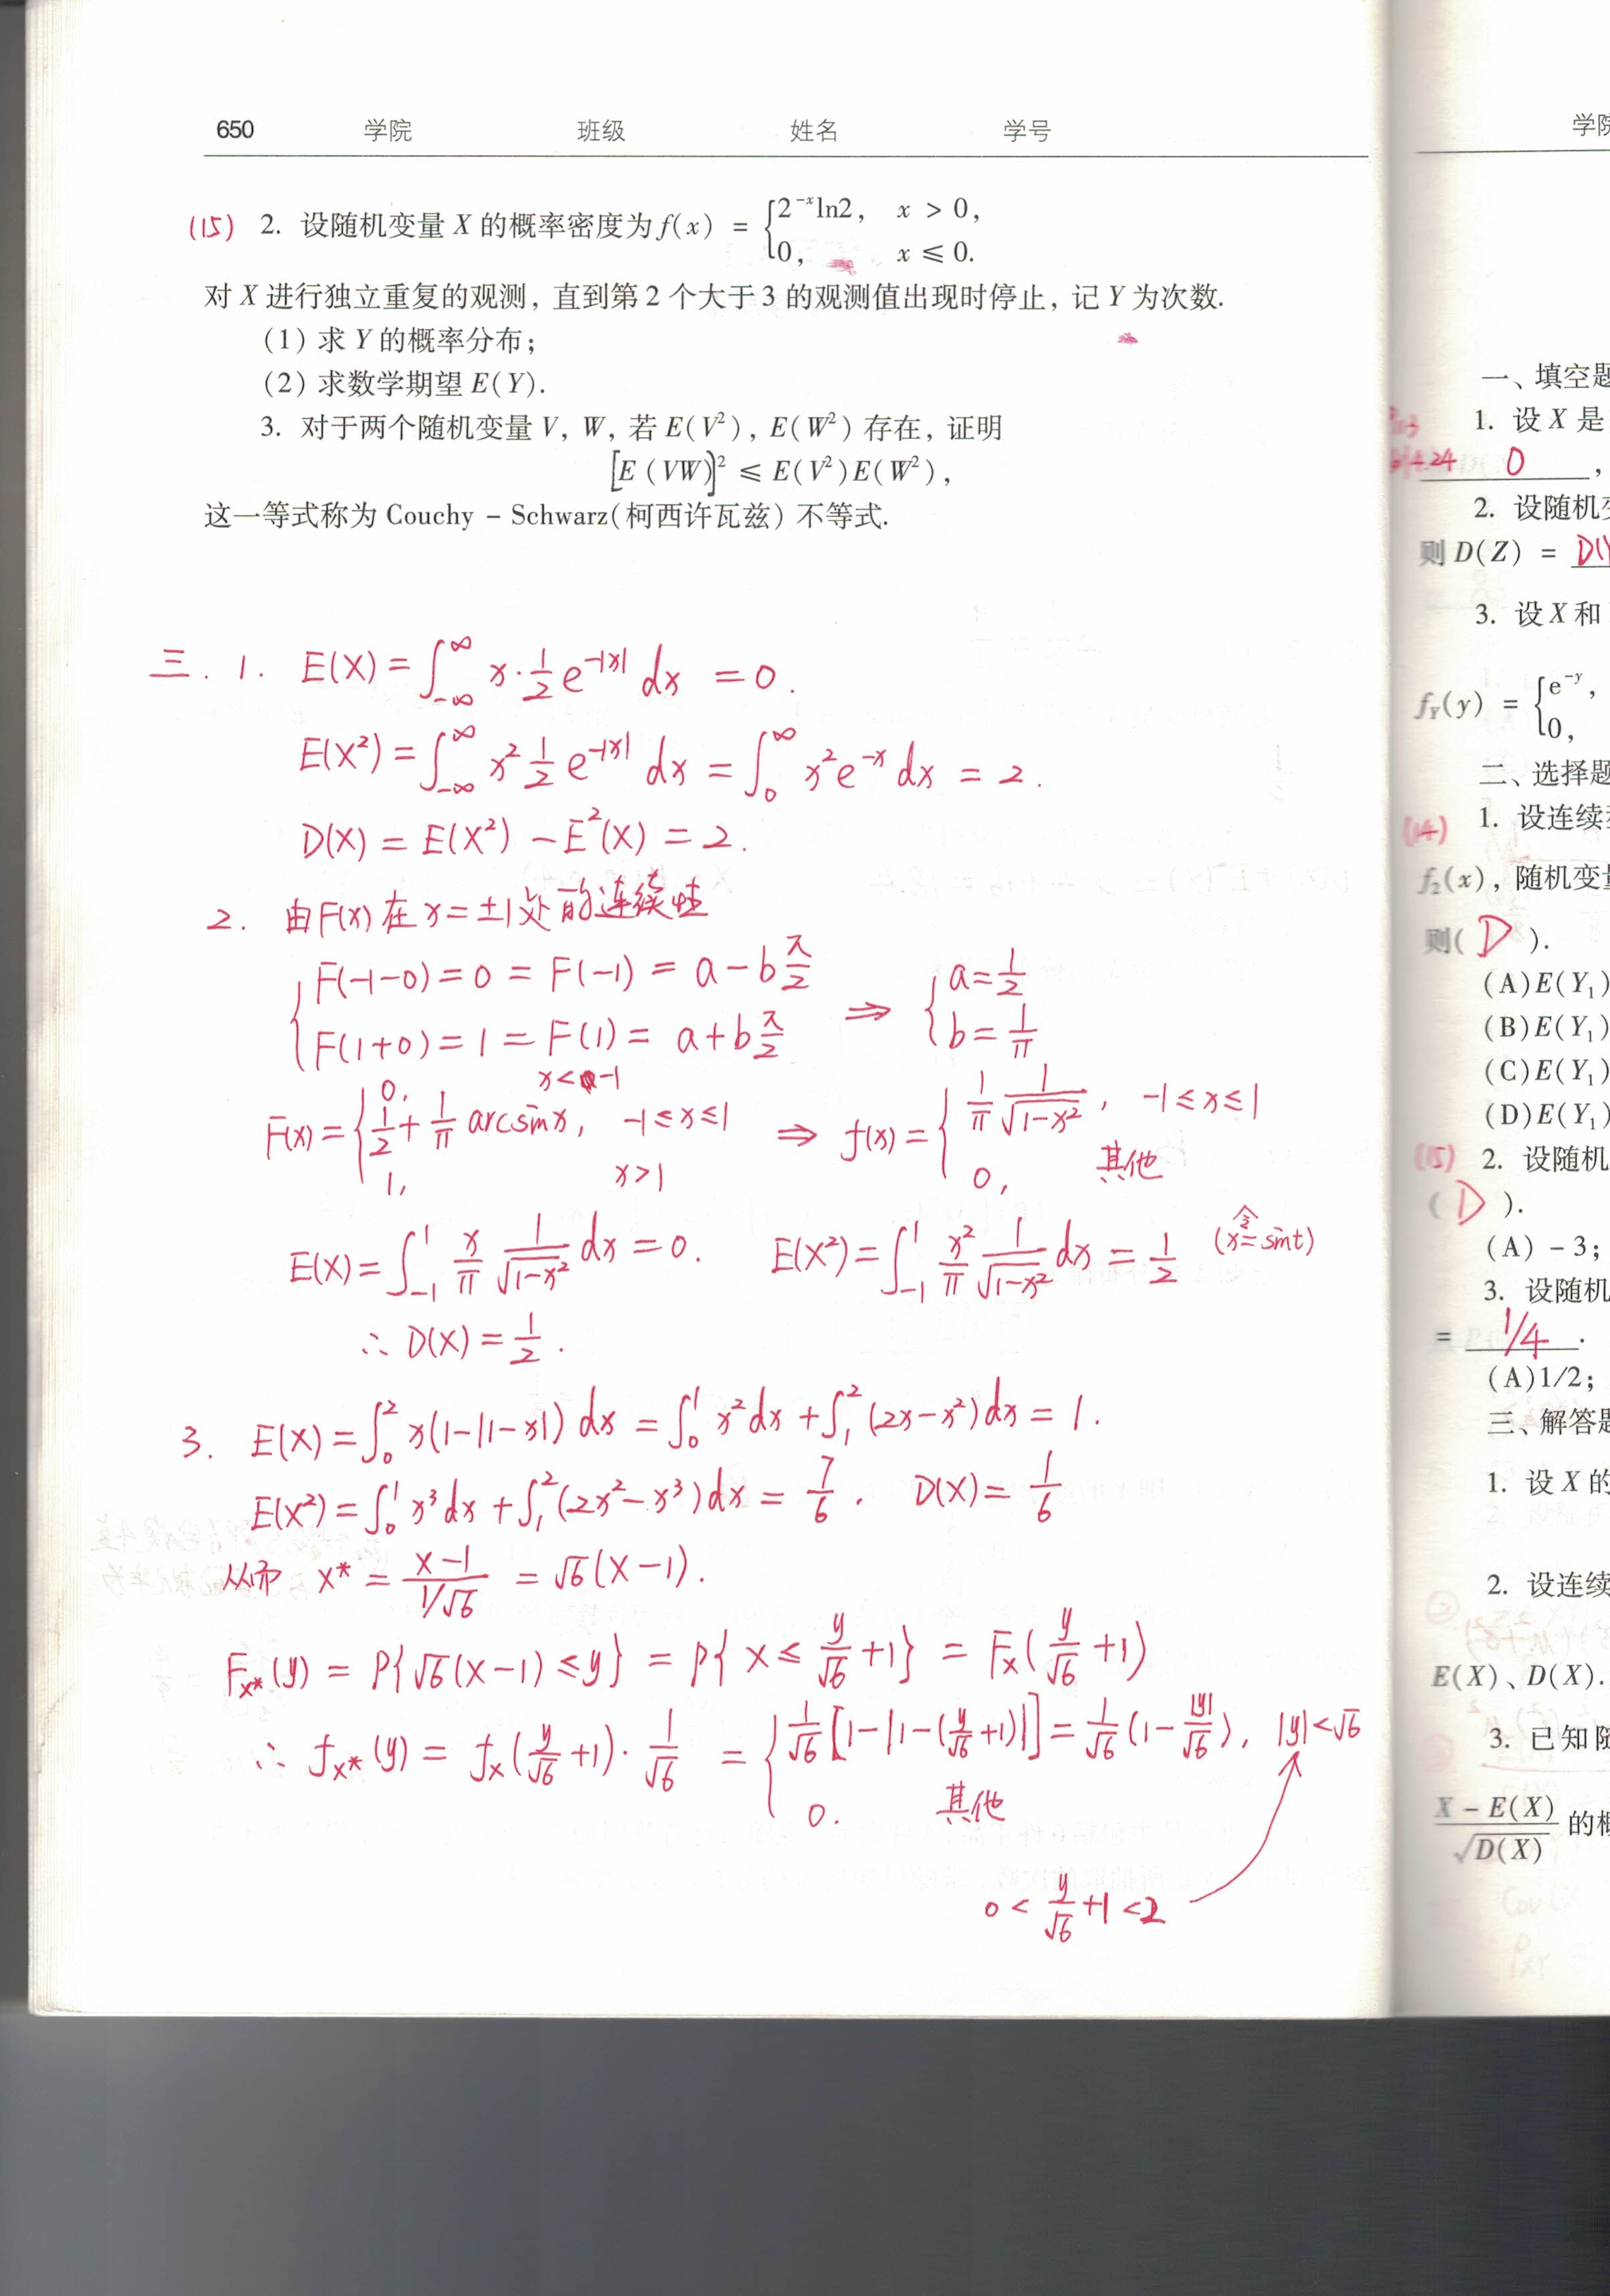 650 学院 班级 姓名 学号
(15) 2. 设随机变量 X 的概率密度为 f(x) = { 2⁻ˣln2, x > 0,
0, x ≤ 0.
对 X 进行独立重复的观测, 直到第 2 个大于 3 的观测值出现时停止, 记 Y 为次数.
(1) 求 Y 的概率分布;
(2) 求数学期望 E(Y).
3. 对于两个随机变量 V, W, 若 E(V²), E(W²) 存在, 证明
[E (VW)]² ≤ E(V²)E(W²),
这一等式称为 Couchy - Schwarz(柯西许瓦兹) 不等式.
三. 1. E(X) = ∫_{-∞}^{∞} x·½e^{-|x|} dx = 0.
E(X²) = ∫_{-∞}^{∞} x² ½ e^{-|x|} dx = ∫_0^∞ x²e^{-x} dx = 2.
D(X) = E(X²) - E²(X) = 2.
2. 由F(x)在 x=±1处的连续性
{ F(-1-0) = 0 = F(-1) = a - b π/2
F(1+0) = 1 = F(1) = a + b π/2 ⇒ { a = 1/2
b = 1/π
F(x) = { 0, x<-1
1/2 + 1/π arcsinx, -1≤x≤1
1, x>1
⇒ f(x) = { 1/π 1/√(1-x²), -1≤x≤1
0, 其他
E(X) = ∫_{-1}^{1} x/π 1/√(1-x²) dx = 0. E(X²) = ∫_{-1}^{1} x²/π 1/√(1-x²) dx = 1/2 (x 令= sint)
∴ D(X) = 1/2.
3. E(X) = ∫_0^2 x(1-|1-x|) dx = ∫_0^1 x²dx + ∫_1^2 (2x-x²)dx = 1.
E(X²) = ∫_0^1 x³dx + ∫_1^2 (2x²-x³)dx = 7/6. D(X) = 1/6
从而 X* = (X-1)/(1/√6) = √6(X-1).
F_{X*}(y) = P{√6(X-1) ≤ y} = P{X ≤ y/√6 +1} = F_X(y/√6 +1)
∴ f_{X*}(y) = f_X(y/√6 +1)·1/√6 = { 1/√6 [1-|1-(y/√6+1)|] = 1/√6 (1-|y|/√6), |y|<√6
0. 其他
0 < y/√6 +1 < 2
学院
一、填空题
1. 设 X 是
0,
2. 设随机变
则 D(Z) = D(Y
3. 设 X 和
f_Y(y) = { e^{-y},
0,
二、选择题
(14) 1. 设连续
f₂(x), 随机变量
则( D ).
(A)E(Y₁)
(B)E(Y₁)
(C)E(Y₁)
(D)E(Y₁)
(15) 2. 设随机
( D ).
(A) -3;
3. 设随机
= 1/4.
(A)1/2;
三、解答题
1. 设 X 的
2. 设连续
E(X)、D(X).
3. 已知随
(X - E(X))/√D(X) 的概